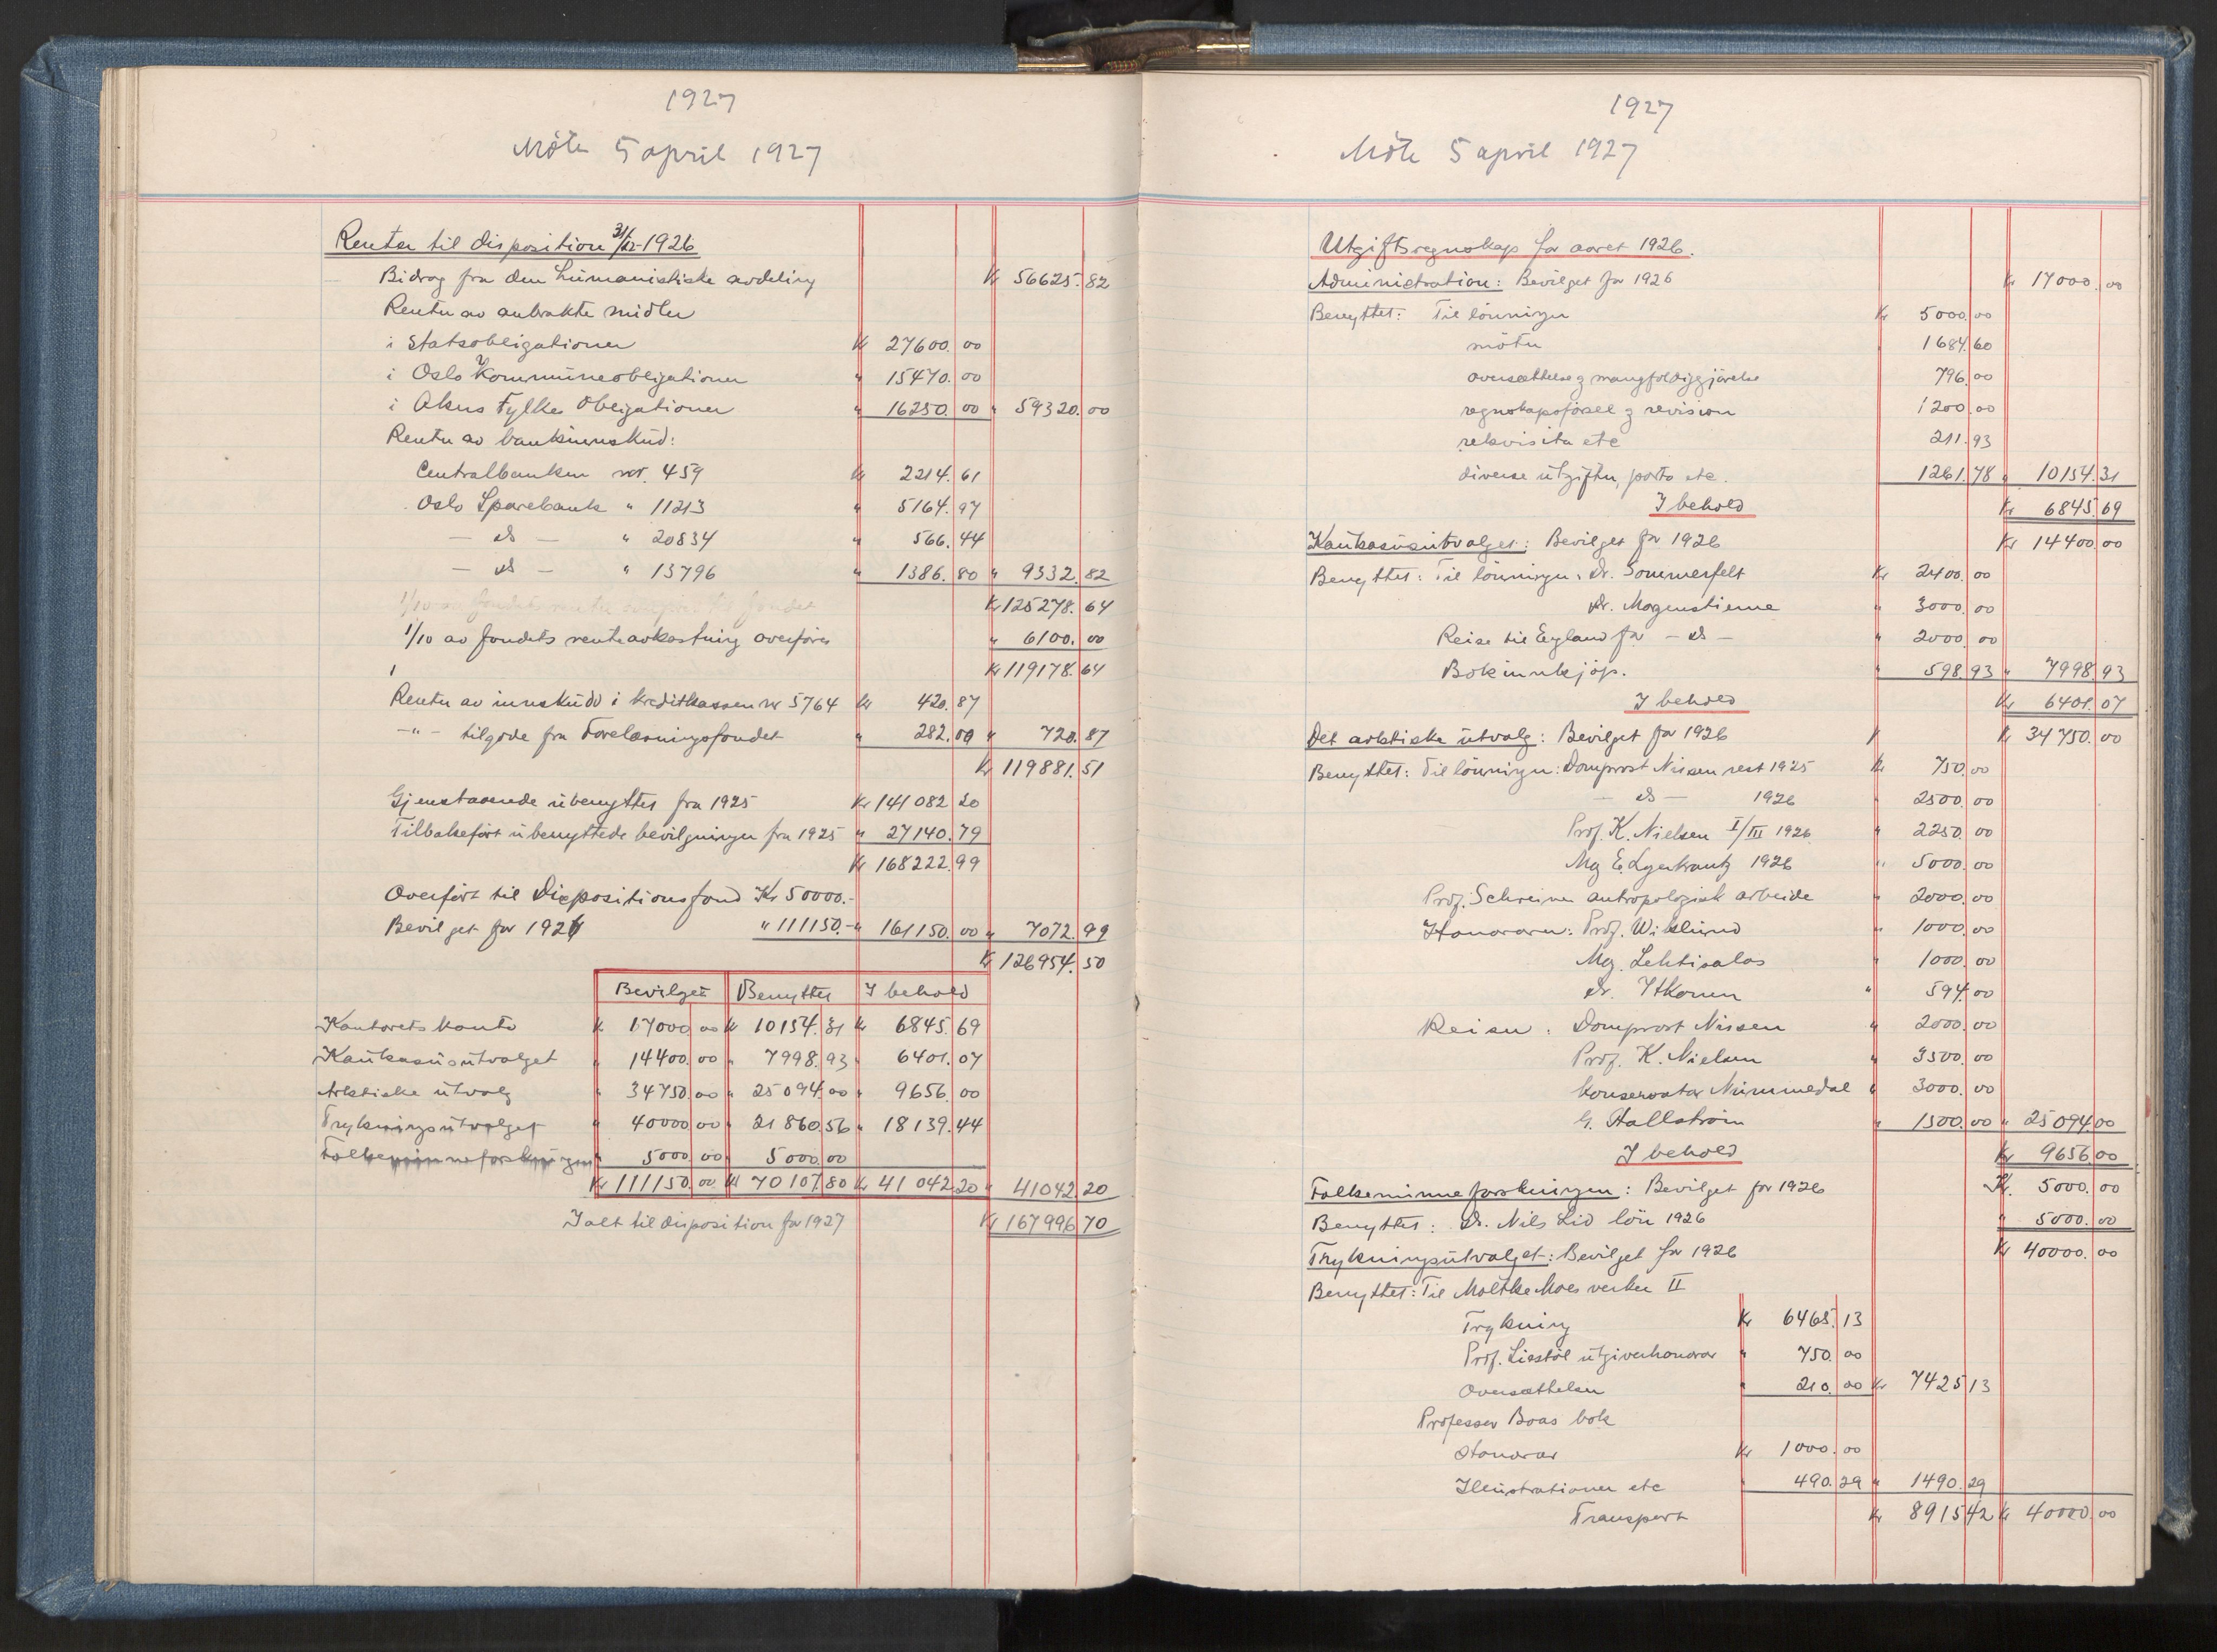 1927
Möte 5 april 1927
Renter til disposition 31/12-1926
Bidrag fra den humanistiske avdeling Kr 56625.82
Renter av anbrakte midler
i Statsobligationer Kr 27600.00
i Oslo Kommuneobligationer " 15470.00
i Akers Fylkes Obligationer " 16250.00 " 59320.00
Renter av bankinnskud:
Centralbanken nr. 459 Kr 2214.61
Oslo Sparebank " 11213 " 5164.97
— do — " 20834 " 566.44
— do — " 13796 " 1386.80 " 9332.82
Kr 125278.64
1/10 av fondets renteavkastning overföres " 6100.00
Kr 119178.64
Renter av innskudd i Kreditkassen nr 5764 Kr 420.87
—"— tilgode fra Forelæsningsfondet " 282.00 " 720.87
Kr 119881.51
Gjenstaaende ubenyttet fra 1925 Kr 141082.20
Tilbakefört ubenyttede bevilgninger fra 1925 " 27140.79
Kr 168222.99
Overfört til Dispositionsfond Kr 50000.-
Bevilget for 1926 " 111150.- " 161150.00 " 7072.99
Kr 126954.50
Bevilget Benyttet I behold
Kontorets konto Kr 17000.00 Kr 10154.31 Kr 6845.69
Kaukasusutvalget " 14400.00 " 7998.93 " 6401.07
Arktiske utvalg " 34750.00 " 25094.00 " 9656.00
Trykningsutvalget " 40000.00 " 21860.56 " 18139.44
Folkeminneforskningen " 5000.00 5000.00
Kr 111150.00 Kr 70107.80 Kr 41042.20 " 41042.20
Ialt til disposition for 1927 Kr 167996.70
1927
Möte 5 april 1927
Utgiftsregnskap for aaret 1926.
Administration: Bevilget for 1926 Kr 17000.00
Benyttet: Til lönninger Kr 5000.00
möter 1684.60
oversættelse og mangfoldiggjörelse 796.00
regnskapsförsel og revision 1200.00
rekvisita etc 211.93
diverse utgifter, porto etc. 1261.78 " 10154.31
I behold Kr 6845.69
Kaukasusutvalget: Bevilget for 1926 Kr 14400.00
Benyttet: Til lönninger: Dr. Sommerfelt Kr 2400.00
Dr. Morgenstierne " 3000.00
Reise til England for — do — " 2000.00
Bokinnkjöp. " 598.93 " 7998.93
I behold Kr 6401.07
Det arktiske utvalg: Bevilget for 1926 Kr 34750.00
Benyttet: Til lönninger: Domprost Nissen rest 1925 Kr 750.00
— do — 1926 " 2500.00
Prof. K. Nielsen I/III 1926 " 2250.00
Mag E. Lagercrantz 1926 " 5000.00
Prof. Schreiner antropologisk arbeide " 2000.00
Honorarer: Prof. Wiklund " 1000.00
Mag. Lehtisalos " 1000.00
Dr. Itkonen " 594.00
Reiser: Domprost Nissen " 2000.00
Prof. K. Nielsen " 3500.00
Konservator Nummedal " 3000.00
G. Hallström " 1500.00 " 25094.00
I behold Kr 9656.00
Folkeminneforskningen: Bevilget for 1926 Kr. 5000.00
Benyttet: Dr. Nils Lid lön 1926 " 5000.00
Trykningsutvalget: Bevilget for 1926 Kr 40000.00
Benyttet: Til Moltke Moes verker II
Trykning Kr 6465.13
Prof. Liestöl utgiverhonorar " 750.00
Oversættelser " 210.00 Kr 7425.13
Professor Boas bok
Honorar Kr 1000.00
Illustrationer etc " 490.29 " 1490.29
Transport Kr 8915.42 Kr 40000.00